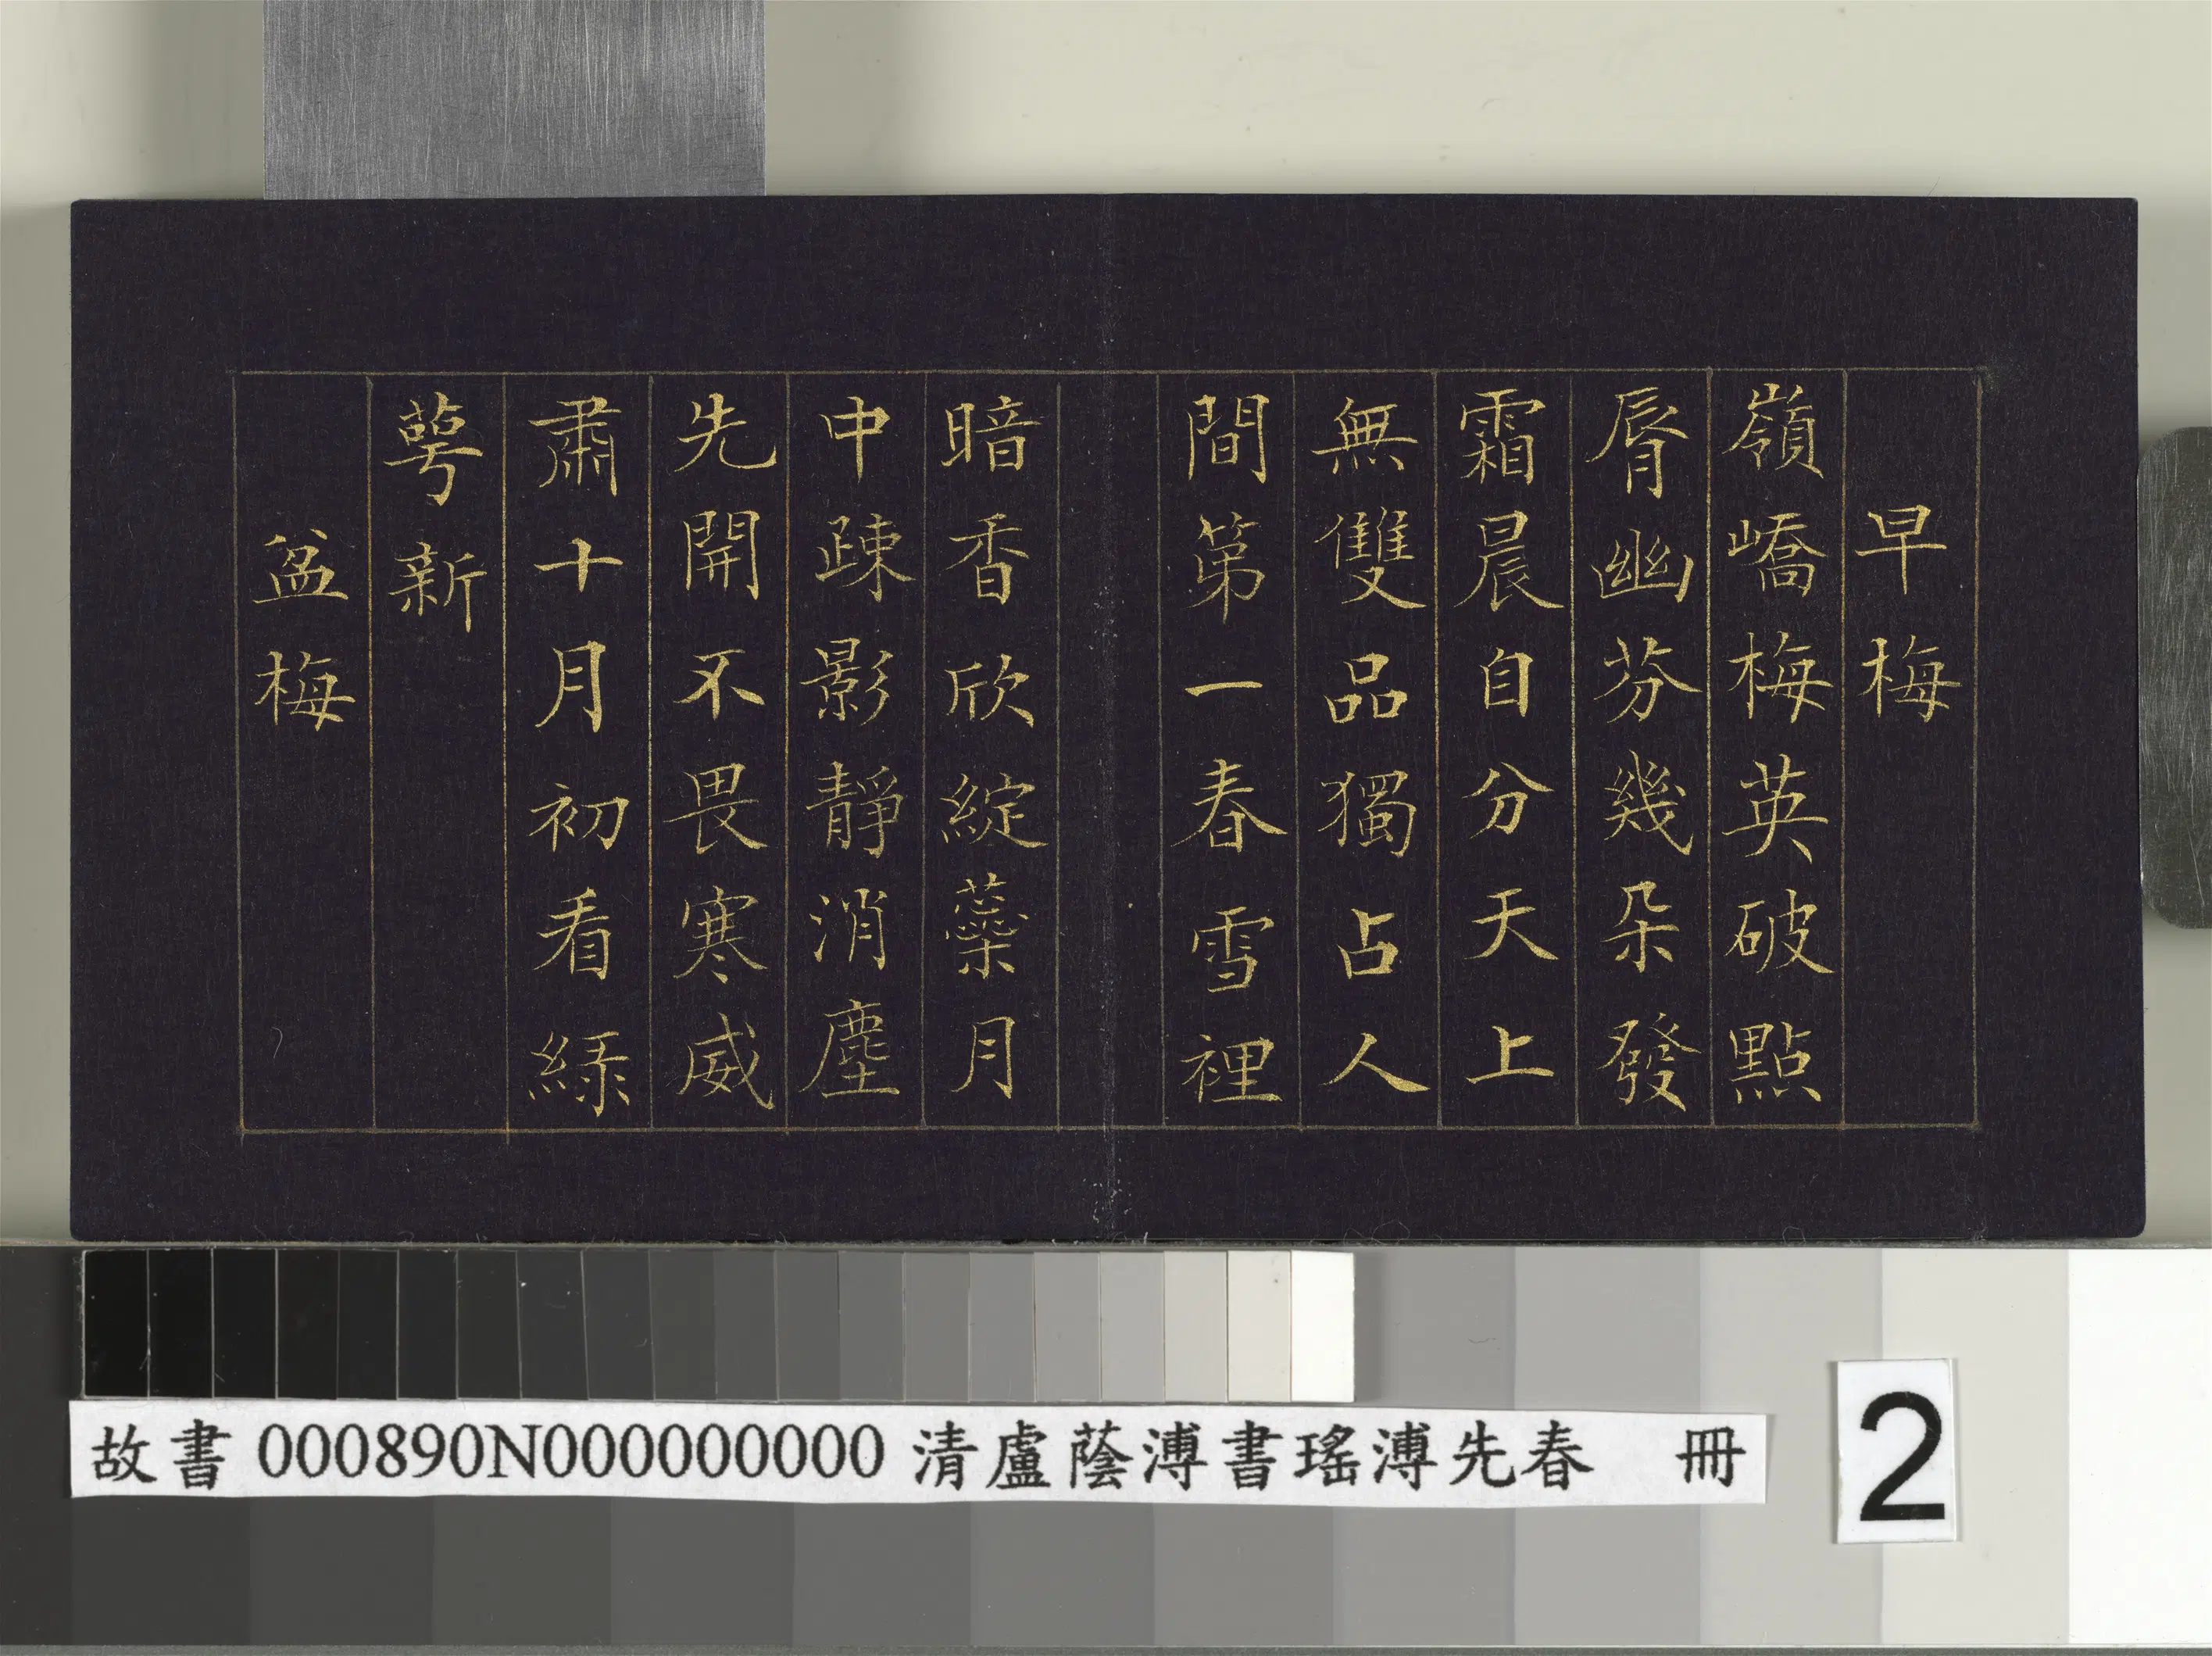 早梅
嶺嶠梅英破點
脣幽芬幾朵發
霜晨自分天上
無雙品獨占人
間第一春雪裡
暗香欣綻蘂月
中疎影靜消塵
先開不畏寒威
肅十月初看綠
萼新
盆梅
故書000890N000000000清盧蔭溥書瑤溥先春 冊
2